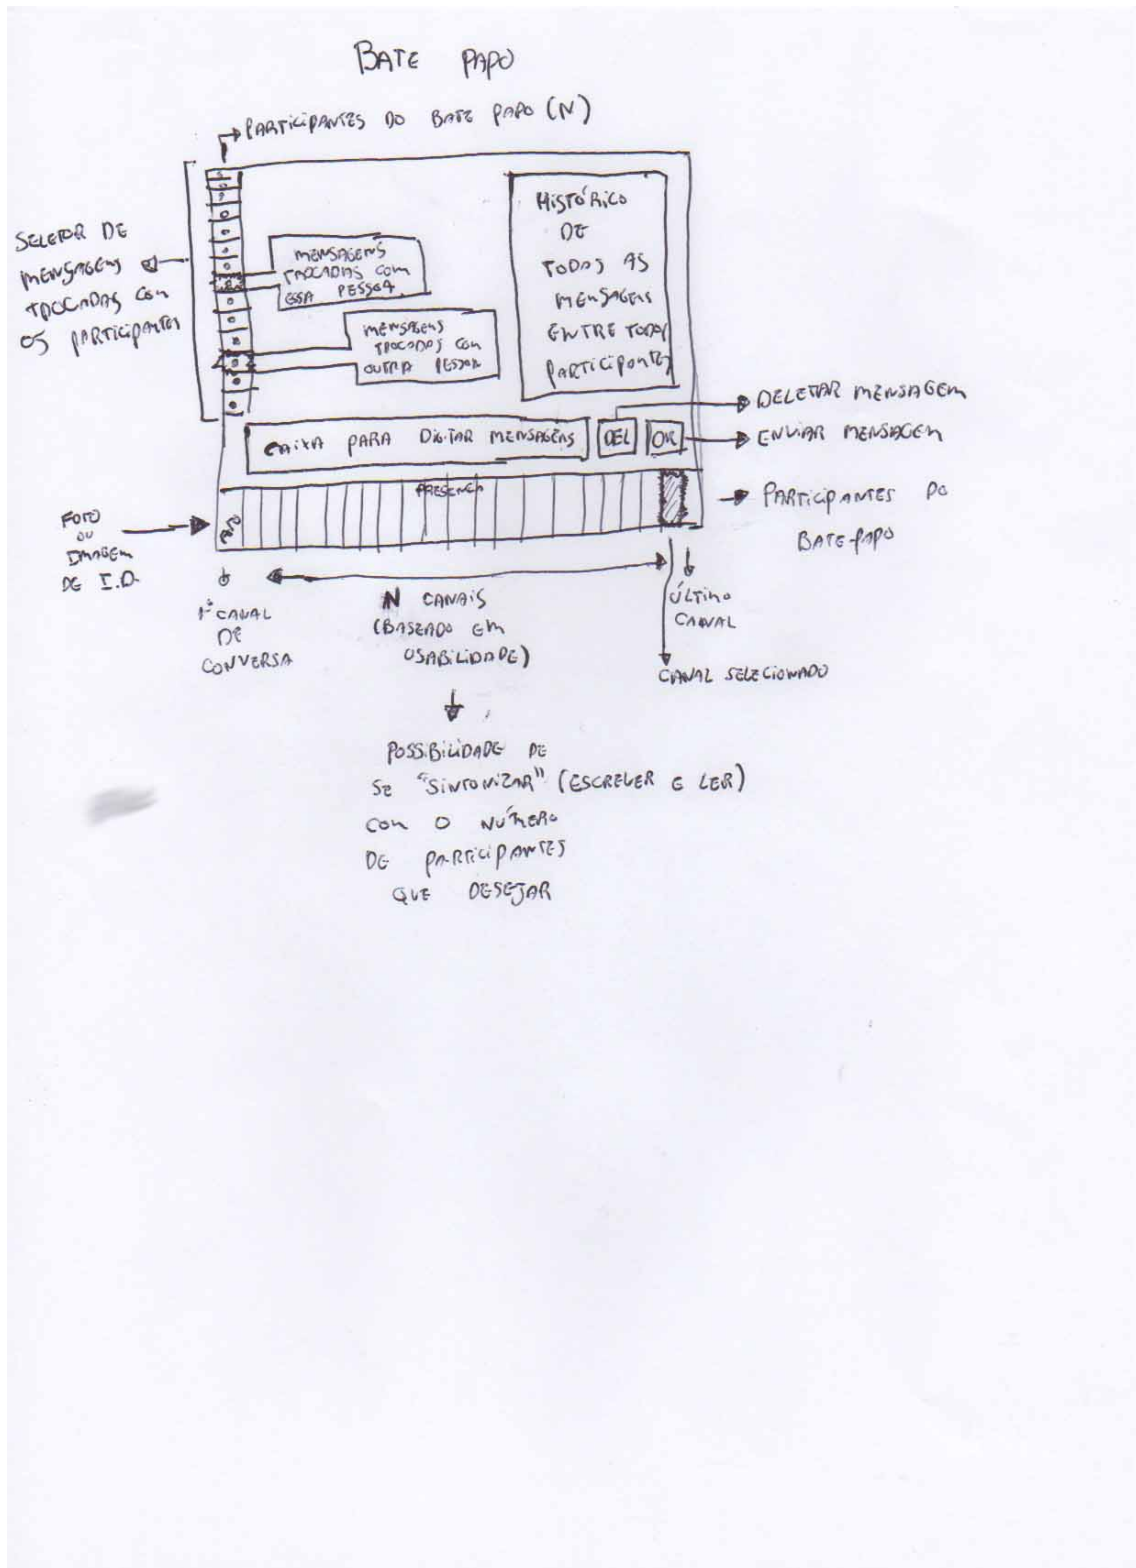 BATE PAPO
PARTICIPANTES DO BATE PAPO (N)
SELETOR DE
MENSAGENS
TROCADAS COM
OS PARTICIPANTES
MENSAGENS
TROCADAS COM
ESSA PESSOA
MENSAGENS
TROCADAS COM
OUTRA PESSOA
HISTÓRICO
DE
TODAS AS
MENSAGENS
ENTRE TODOS
PARTICIPANTES
CAIXA PARA DIGITAR MENSAGENS
DEL
OK
DELETAR MENSAGEM
ENVIAR MENSAGEM
PRESENÇA
PARTICIPANTES DO
BATE-PAPO
FOTO
OU
IMAGEM
DE I.D.
1º CANAL
DE
CONVERSA
N CANAIS
(BASEADO EM
USABILIDADE)
ÚLTIMO
CANAL
CANAL SELECIONADO
POSSIBILIDADE DE
SE "SINTONIZAR" (ESCREVER E LER)
COM O NÚMERO
DE PARTICIPANTES
QUE DESEJAR